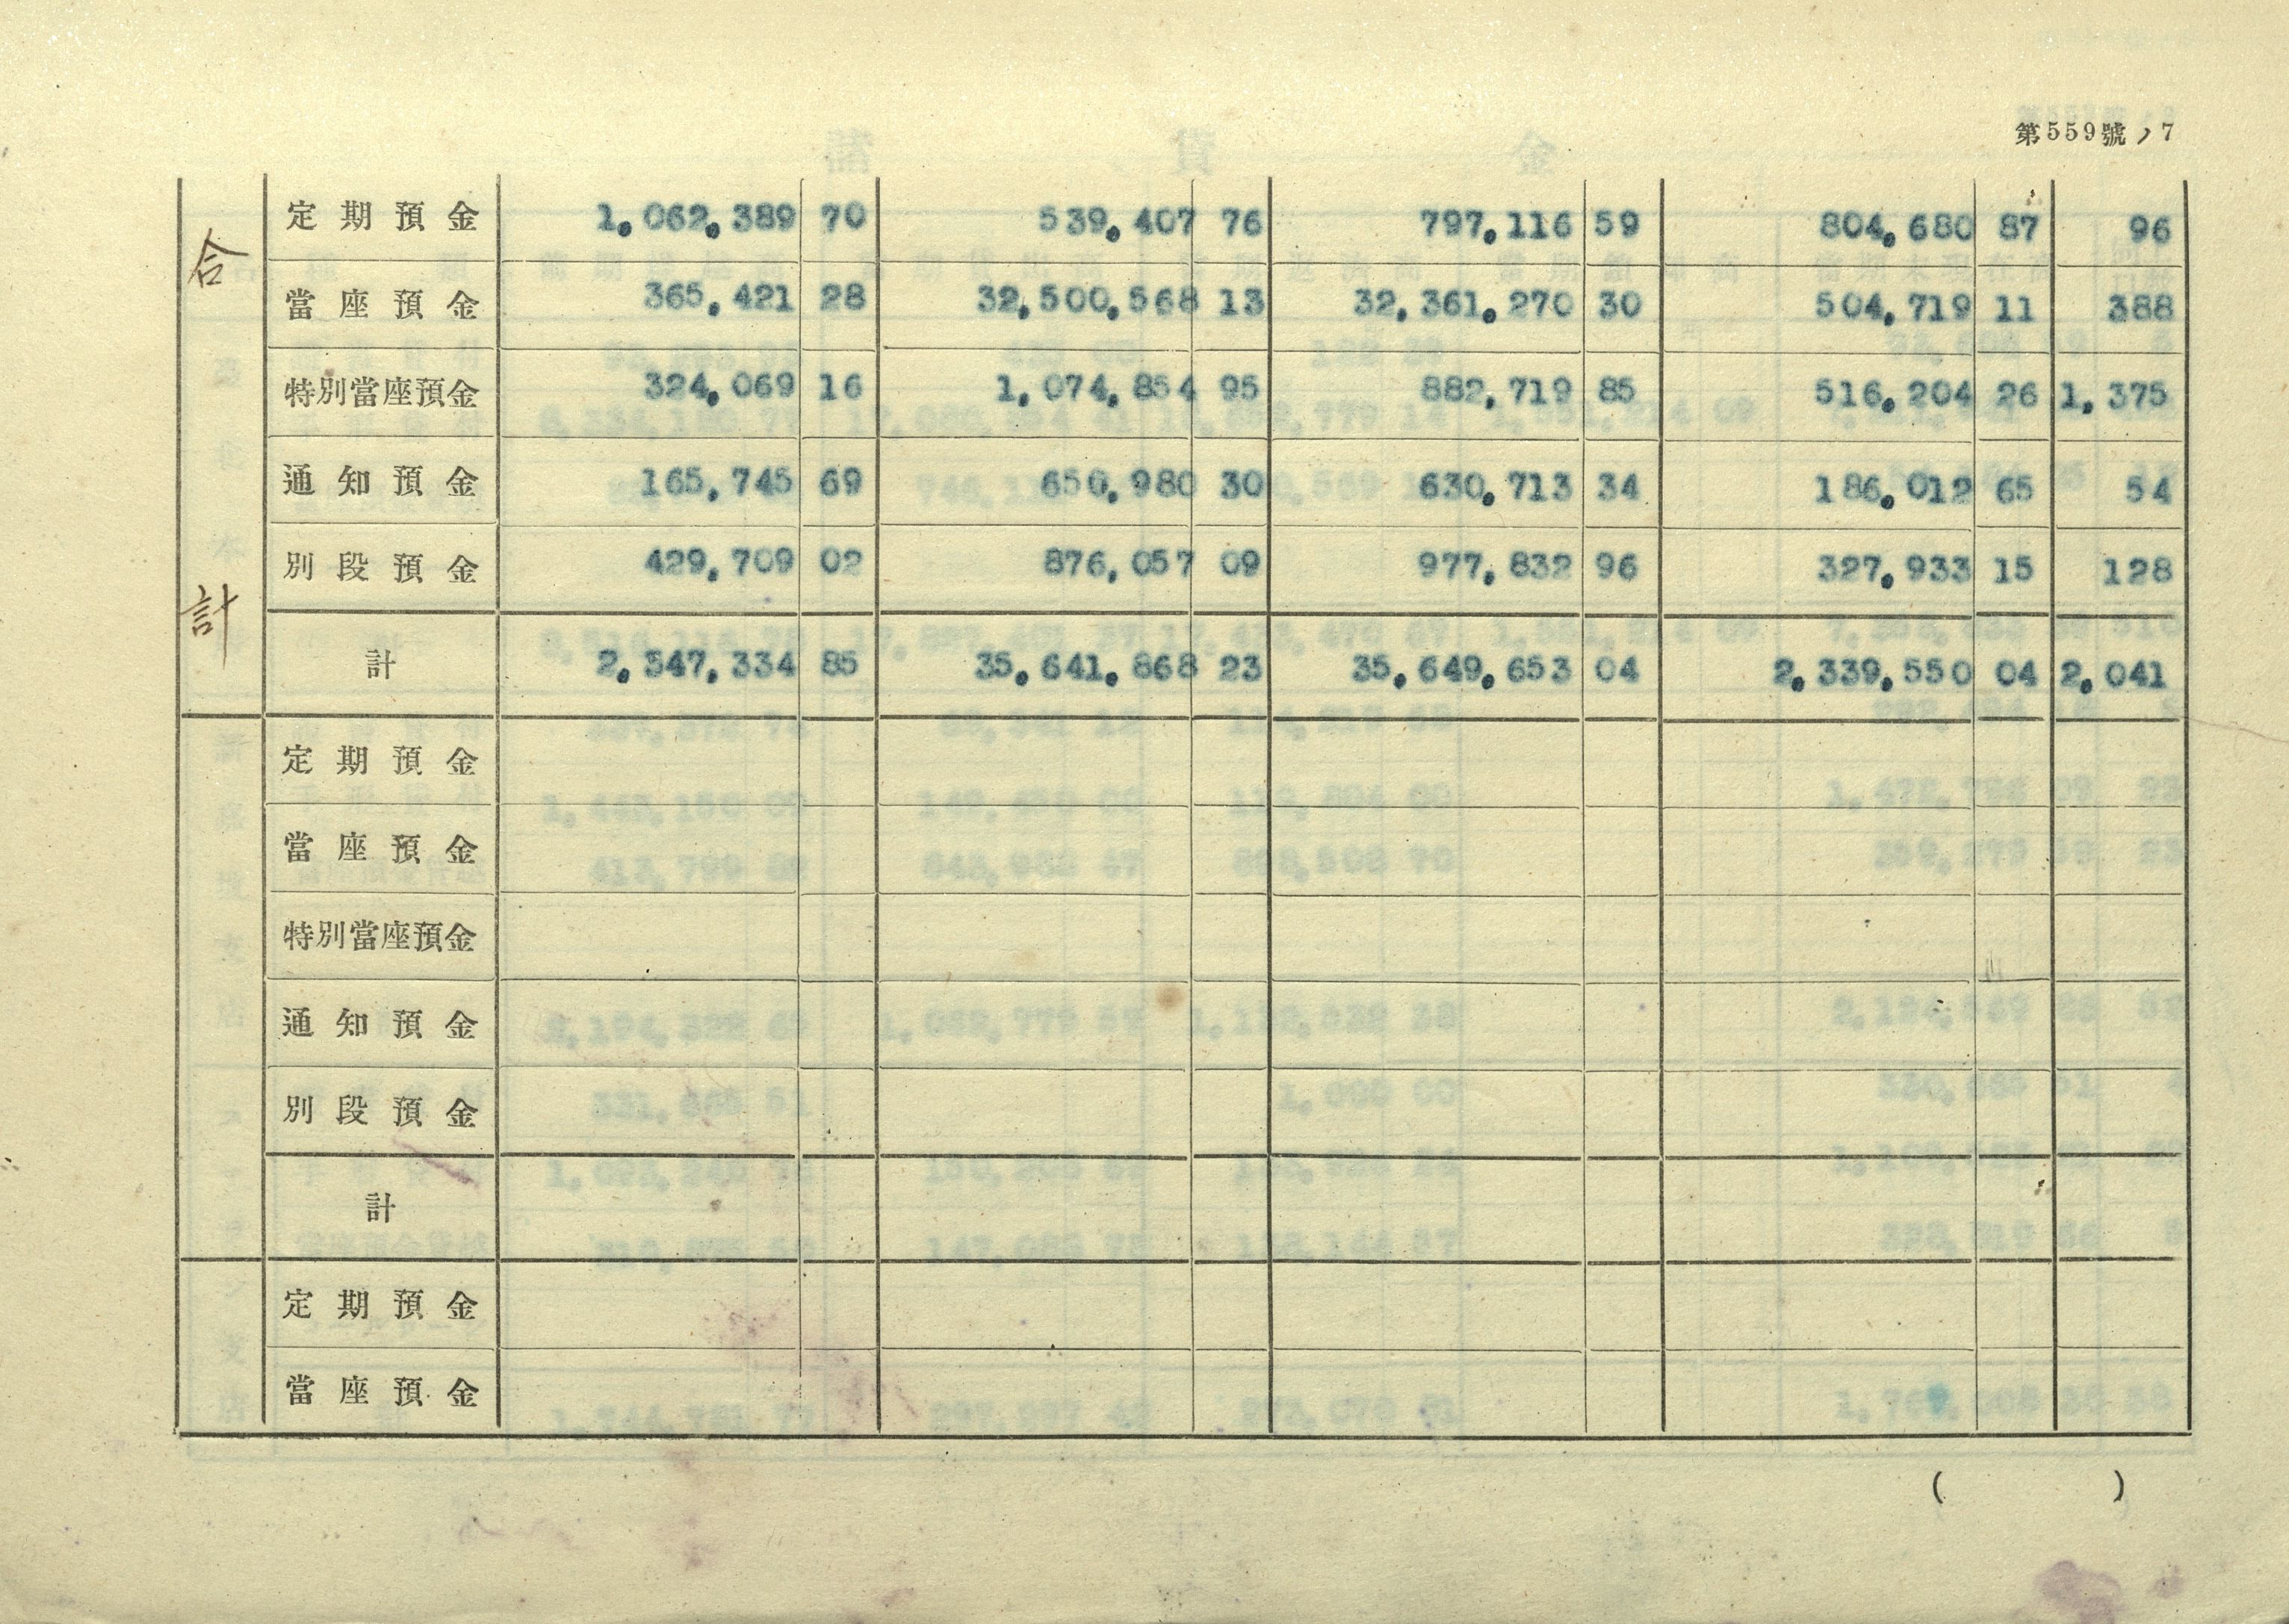 第559號ノ7
合計
定期預金 1,062,389 70 539,407 76 797,116 59 804,680 87 96
當座預金 365,421 28 32,500,568 13 32,361,270 30 504,719 11 388
特別當座預金 324,069 16 1,074,854 95 882,719 85 516,204 26 1,375
通知預金 165,745 69 650,980 30 630,713 34 186,012 65 54
別段預金 429,709 02 876,057 09 977,832 96 327,933 15 128
計 2,347,334 85 35,641,868 23 35,649,653 04 2,339,550 04 2,041
定期預金
當座預金
特別當座預金
通知預金
別段預金
計
定期預金
當座預金
( )